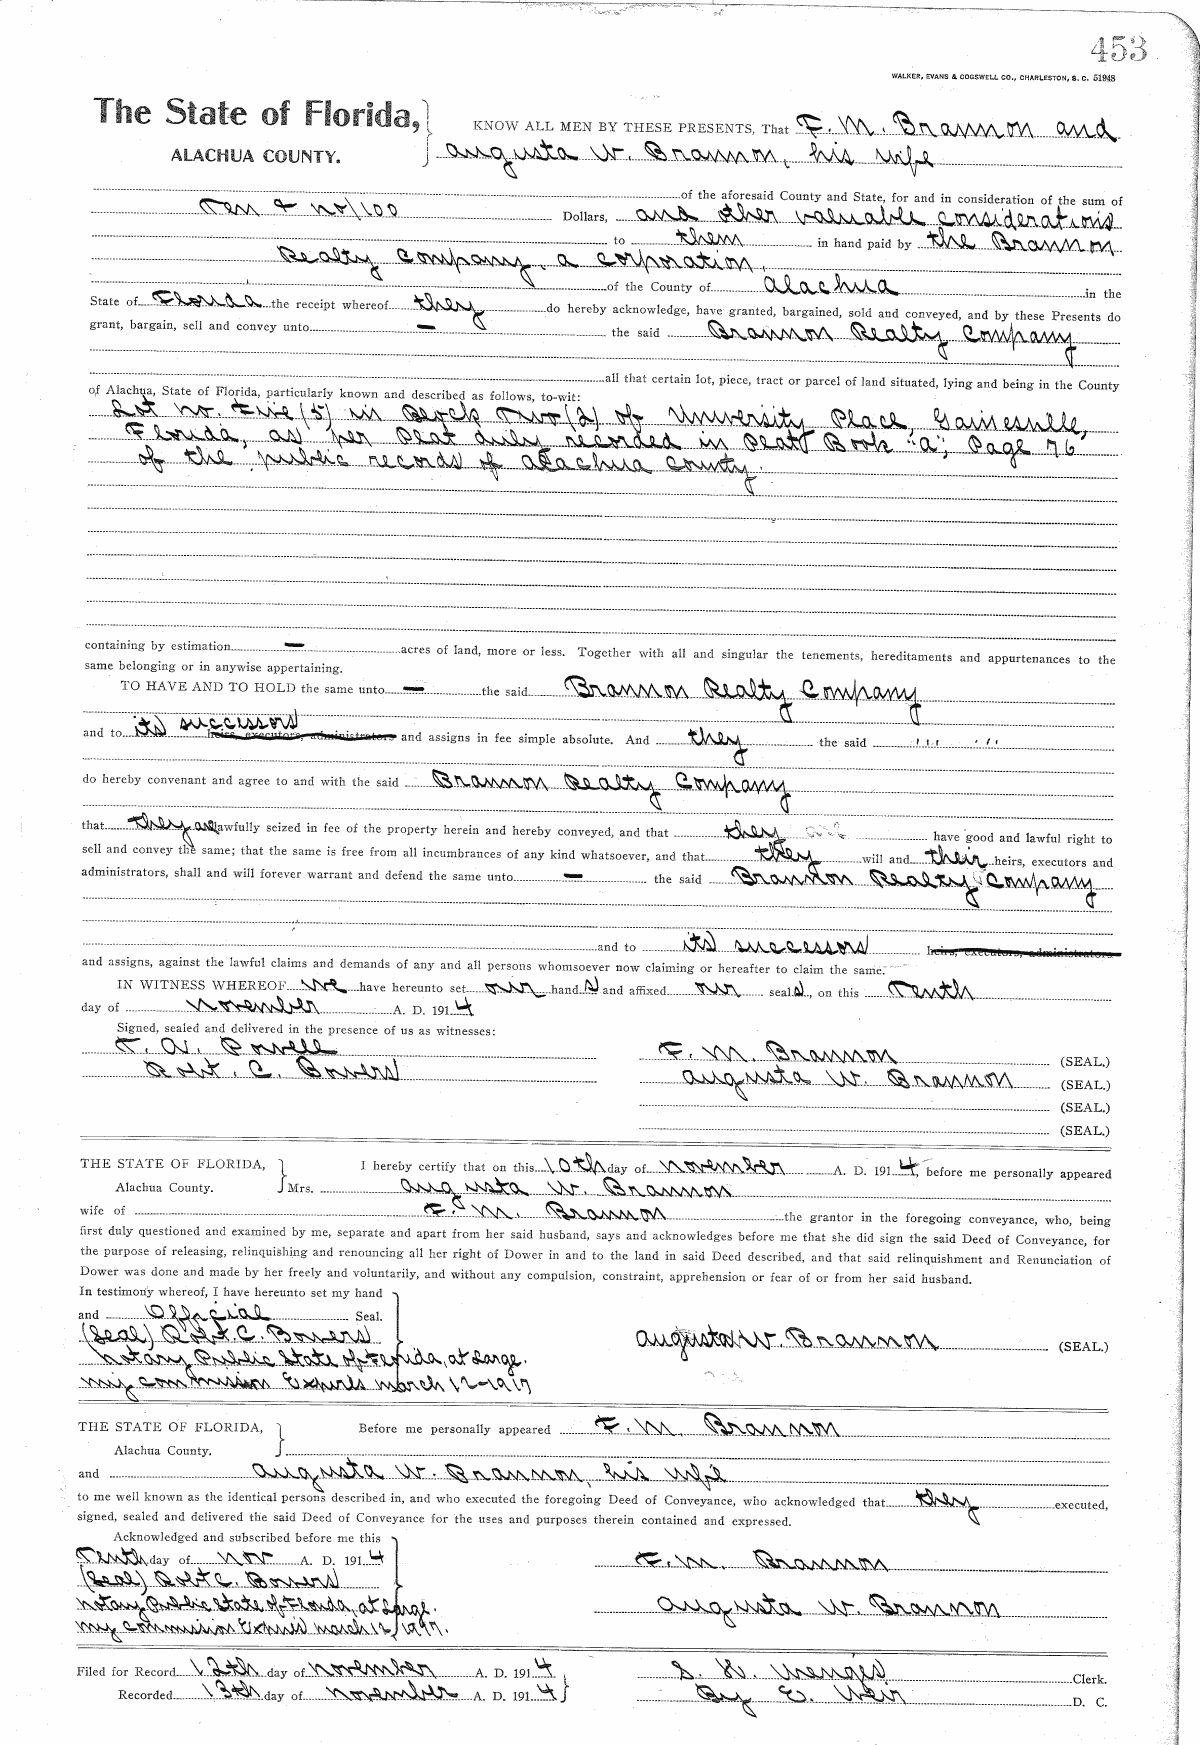 453
WALKER, EVANS & COGSWELL CO., CHARLESTON, S. C. 51948
The State of Florida, KNOW ALL MEN BY THESE PRESENTS, That F. M. Brannon and
ALACHUA COUNTY. Augusta W. Brannon, his wife
of the aforesaid County and State, for and in consideration of the sum of
Ten & no/100 Dollars, and other valuable considerations
to them in hand paid by the Brannon
Realty Company, a corporation,
of the County of Alachua in the
State of Florida the receipt whereof they do hereby acknowledge, have granted, bargained, sold and conveyed, and by these Presents do
grant, bargain, sell and convey unto — the said Brannon Realty Company
all that certain lot, piece, tract or parcel of land situated, lying and being in the County
of Alachua, State of Florida, particularly known and described as follows, to-wit:
Lot no. Five (5) in Block Two (2) of University Place, Gainesville,
Florida, as per Plat duly recorded in Plat Book "A", Page 76
of the public records of Alachua County.
containing by estimation — acres of land, more or less. Together with all and singular the tenements, hereditaments and appurtenances to the
same belonging or in anywise appertaining.
TO HAVE AND TO HOLD the same unto — the said Brannon Realty Company
and to its successors heirs, executors, administrators and assigns in fee simple absolute. And they the said ''' '''
do hereby convenant and agree to and with the said Brannon Realty Company
that they are lawfully seized in fee of the property herein and hereby conveyed, and that they have good and lawful right to
sell and convey the same; that the same is free from all incumbrances of any kind whatsoever, and that they will and their heirs, executors and
administrators, shall and will forever warrant and defend the same unto — the said Brannon Realty Company
and to its successors heirs, executors, administrators
and assigns, against the lawful claims and demands of any and all persons whomsoever now claiming or hereafter to claim the same.
IN WITNESS WHEREOF we have hereunto set our hands and affixed our seals, on this Tenth
day of November A. D. 1914
Signed, sealed and delivered in the presence of us as witnesses:
T. W. Powell F. M. Brannon (SEAL.)
Robt. C. Bowers Augusta W. Brannon (SEAL.)
(SEAL.)
(SEAL.)
THE STATE OF FLORIDA, I hereby certify that on this 10th day of November A. D. 1914, before me personally appeared
Alachua County. Mrs. Augusta W. Brannon
wife of F. M. Brannon the grantor in the foregoing conveyance, who, being
first duly questioned and examined by me, separate and apart from her said husband, says and acknowledges before me that she did sign the said Deed of Conveyance, for
the purpose of releasing, relinquishing and renouncing all her right of Dower in and to the land in said Deed described, and that said relinquishment and Renunciation of
Dower was done and made by her freely and voluntarily, and without any compulsion, constraint, apprehension or fear of or from her said husband.
In testimony whereof, I have hereunto set my hand
and Official Seal.
(Seal) Robt. C. Bowers Augusta W. Brannon (SEAL.)
Notary Public State of Florida, at Large.
My commission Expires March 12-1917
THE STATE OF FLORIDA, Before me personally appeared F. M. Brannon
Alachua County.
and Augusta W. Brannon, his wife
to me well known as the identical persons described in, and who executed the foregoing Deed of Conveyance, who acknowledged that they executed,
signed, sealed and delivered the said Deed of Conveyance for the uses and purposes therein contained and expressed.
Acknowledged and subscribed before me this
Tenth day of Nov A. D. 1914 F. M. Brannon
(Seal) Robt C. Bowers
Notary Public State of Florida, at Large. Augusta W. Brannon
My Commission Expires March 12, 1917.
Filed for Record 12th day of November A. D. 1914 S. H. Wienges Clerk.
Recorded 13th day of November A. D. 1914 By E. Weir D. C.